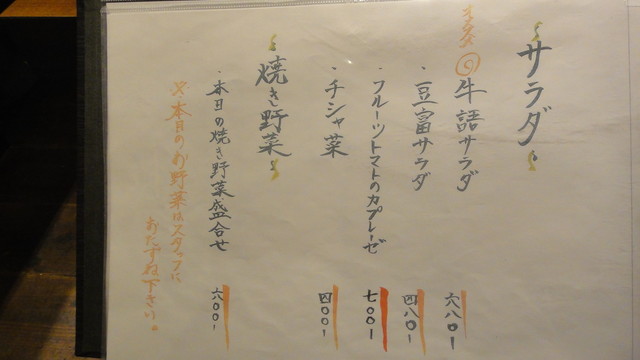 サラダ
オススメ
牛語サラダ 六八〇ー
・豆富サラダ 四八〇ー
・フルーツトマトのカプレーゼ 七〇〇ー
・チシャ菜 四〇〇ー
焼き野菜
・本日の焼き野菜盛合せ 六八〇〇ー
※本日のお野菜はスタッフに
おたずね下さい。